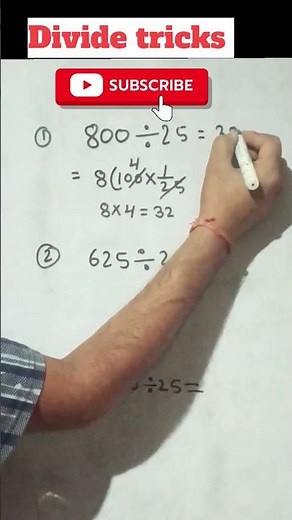 Divide tricks
SUBSCRIBE
① 800 ÷ 25 =
= 8(100 × 1/25
4
8 × 4 = 32
② 625 ÷ 2
÷ 25 =